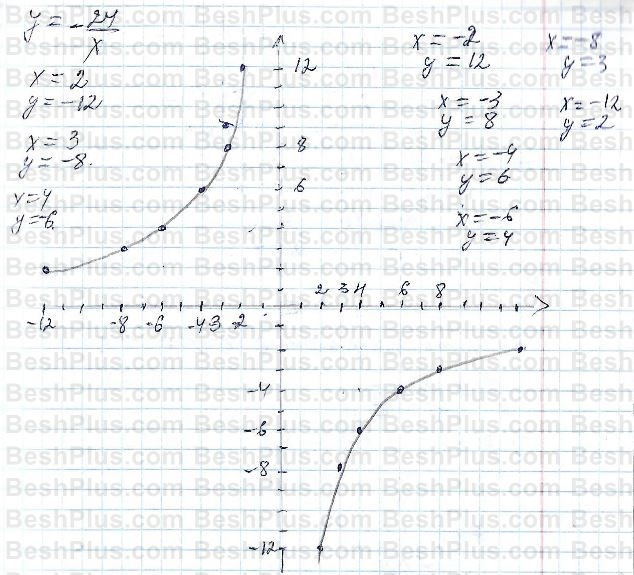 y = -24/x
x = 2
y = -12
x = 3
y = -8.
x=4
y=-6
x = -2
y = 12
x = -3
y = 8
x = -4
y = 6
x = -6
y = 4
x = -8
y = 3
x = -12
y = 2
12
8
6
2 3 4 6 8
-12 -8 -6 -4 -3 -2
-4
-6
-8
-12
BeshPlus.com